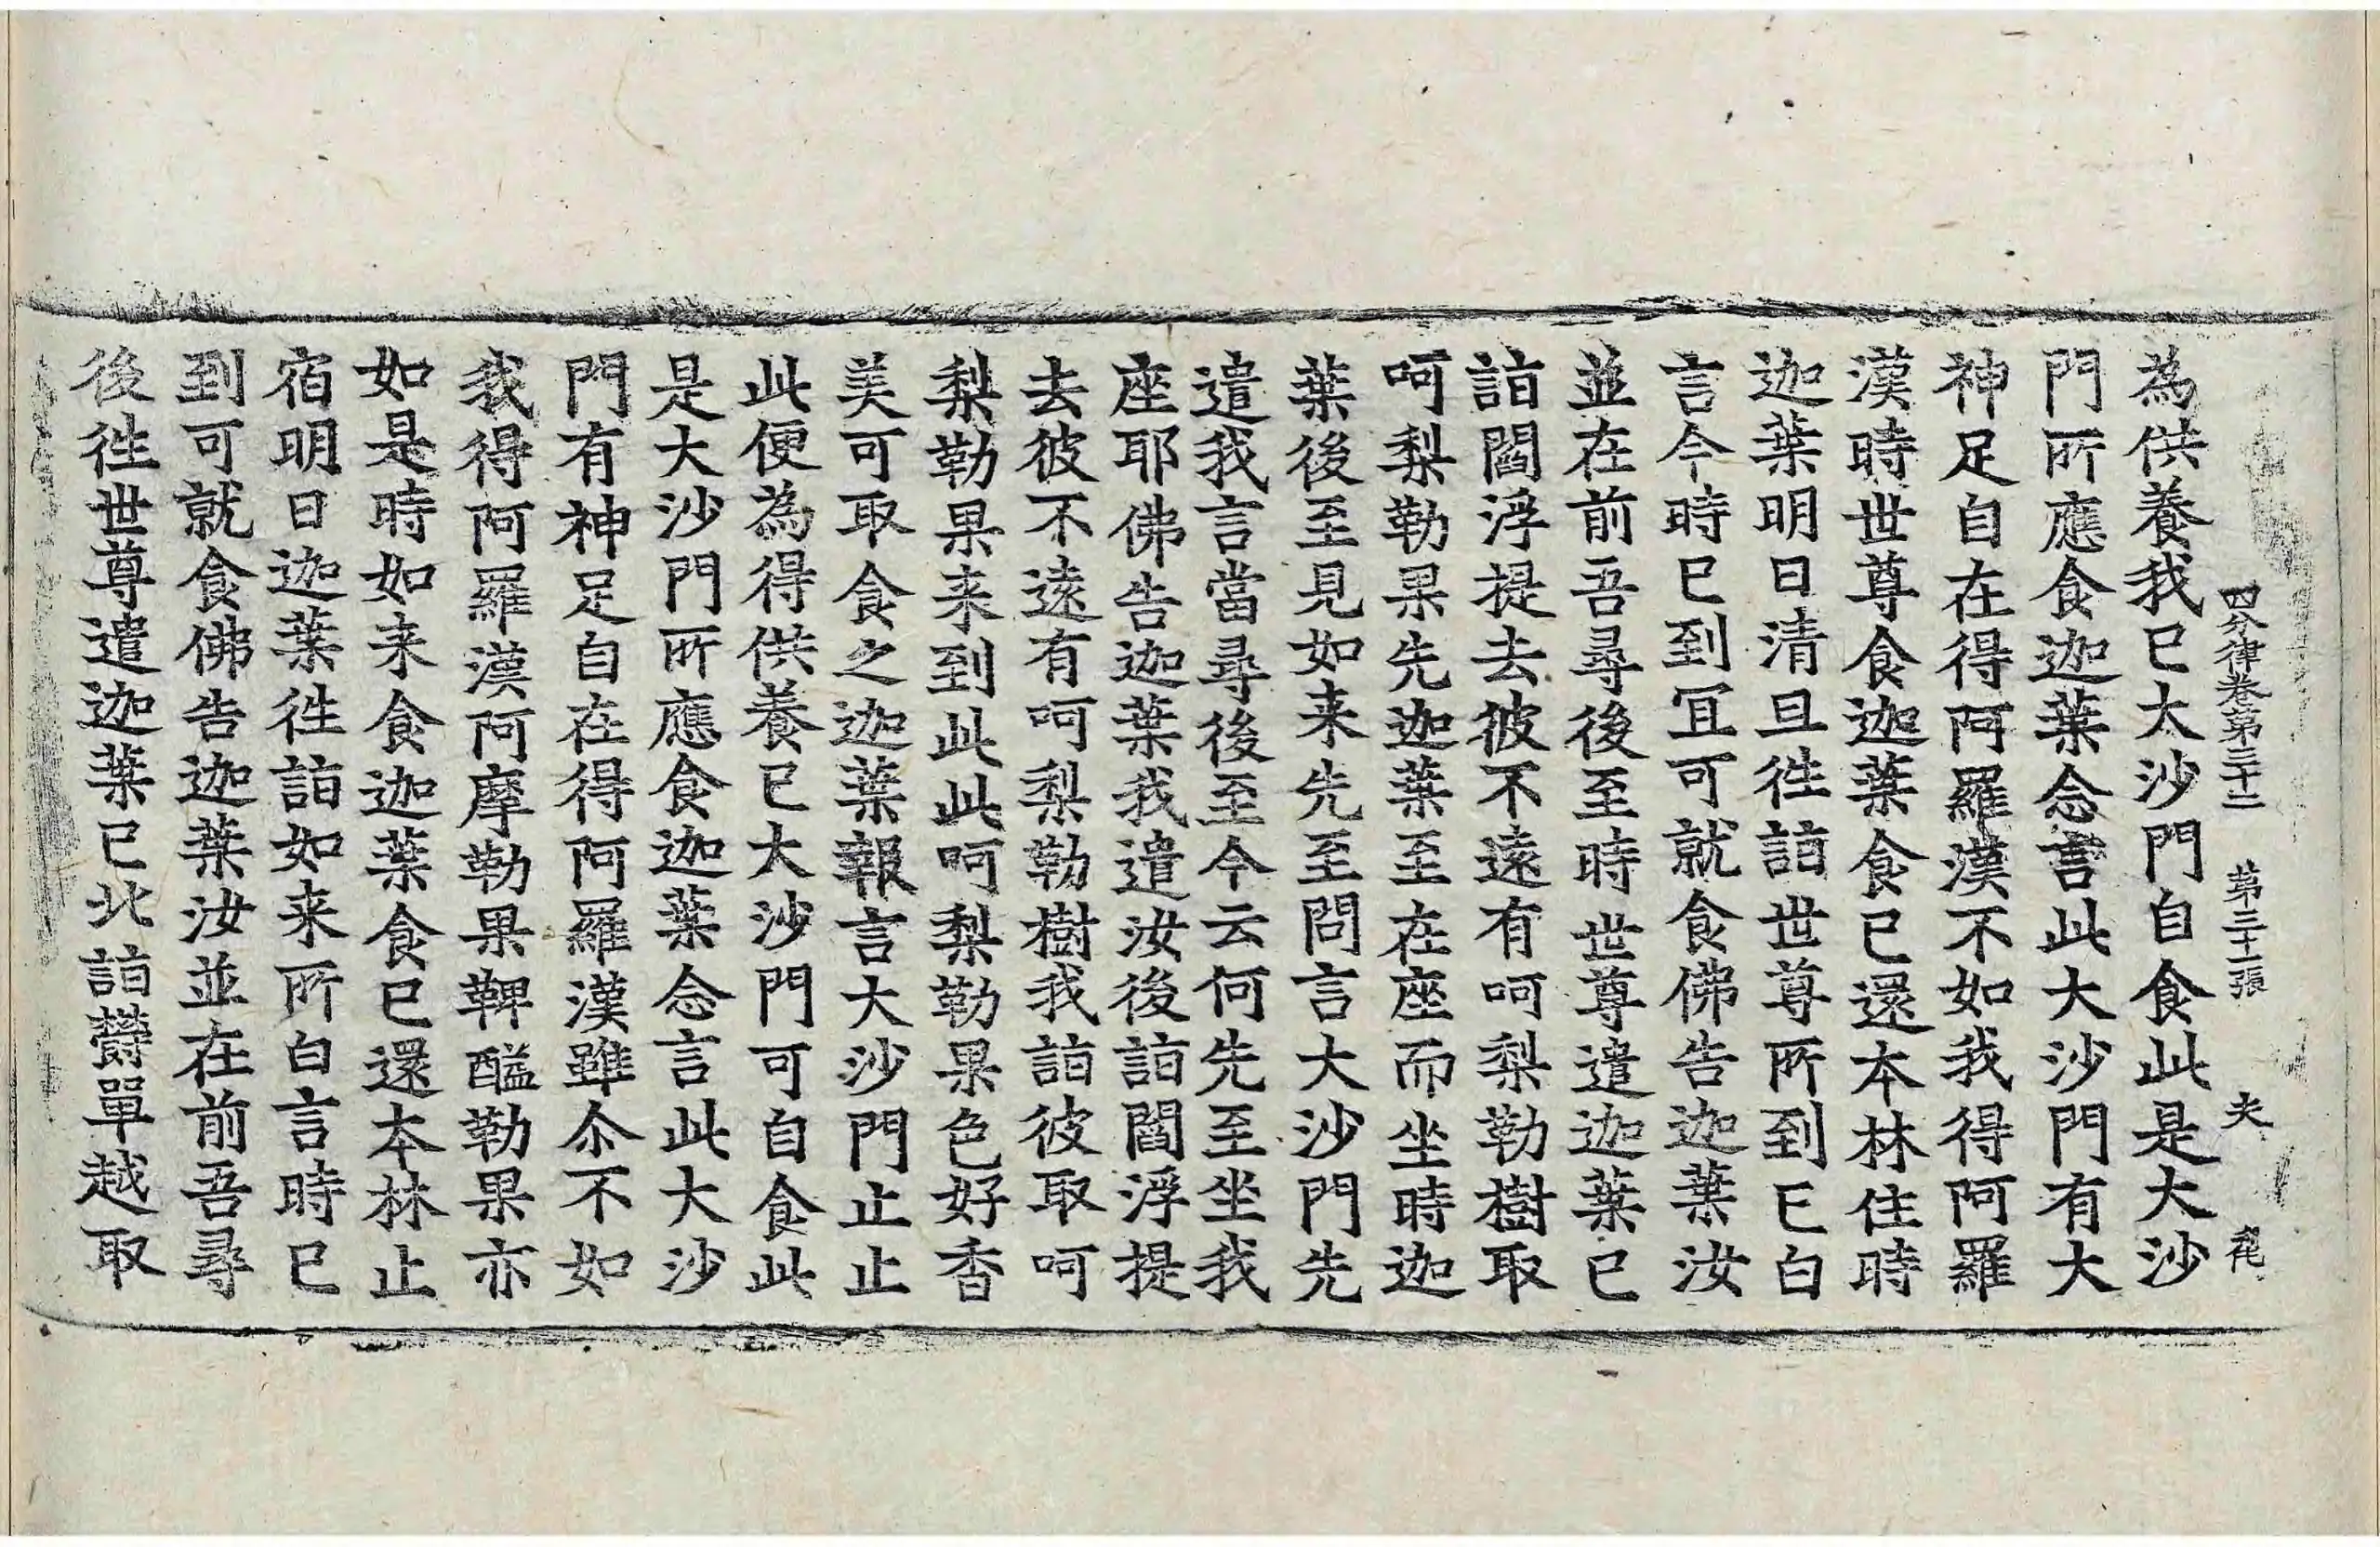 四分律卷第三十二 第三十一張 夫
為供養我已大沙門自食此是大沙
門所應食迦葉念言此大沙門有大
神足自在得阿羅漢不如我得阿羅
漢時世尊食迦葉食已還本林住時
迦葉明日清旦徃詣世尊所到已白
言今時已到冝可就食佛告迦葉汝
並在前吾尋後至時世尊遣迦葉已
詣閻浮提去彼不遠有呵梨勒樹取
呵梨勒果先迦葉至在座而坐時迦
葉後至見如来先至問言大沙門先
遣我言當尋後至今云何先至坐我
座耶佛告迦葉我遣汝後詣閻浮提
去彼不遠有呵梨勒樹我詣彼取呵
梨勒果来到此此呵梨勒果色好香
美可取食之迦葉報言大沙門止止
此便為得供養已大沙門可自食此
是大沙門所應食迦葉念言此大沙
門有神足自在得阿羅漢雖尒不如
我得阿羅漢阿摩勒果鞞醯勒果亦
如是時如来食迦葉食已還本林止
宿明日迦葉徃詣如来所白言時已
到可就食佛告迦葉汝並在前吾尋
後徃世尊遣迦葉已北詣欝單越取